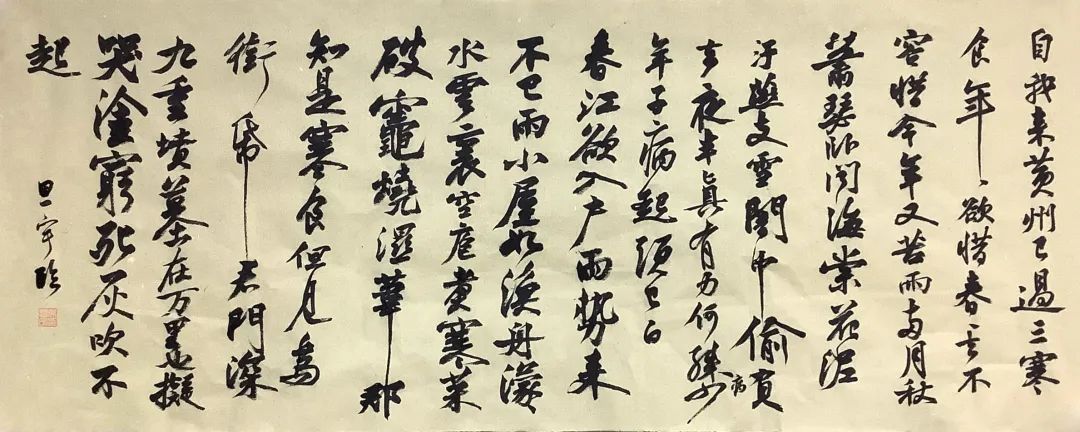 自我来黄州已過三寒
食年、欲惜春春去不
容惜今年又苦雨兩月秋
蕭瑟卧聞海棠花泥
汙燕支雪闇中偷負
去夜半真有力何殊病少
年子病起頭已白
春江欲入户雨勢来
不已雨小屋如漁舟濛々
水雲裏空庖煮寒菜
破竈燒濕葦那
知是寒食但見烏
銜帋君門深
九重墳墓在万里也擬
哭塗窮死灰吹不
起
旦宇臨